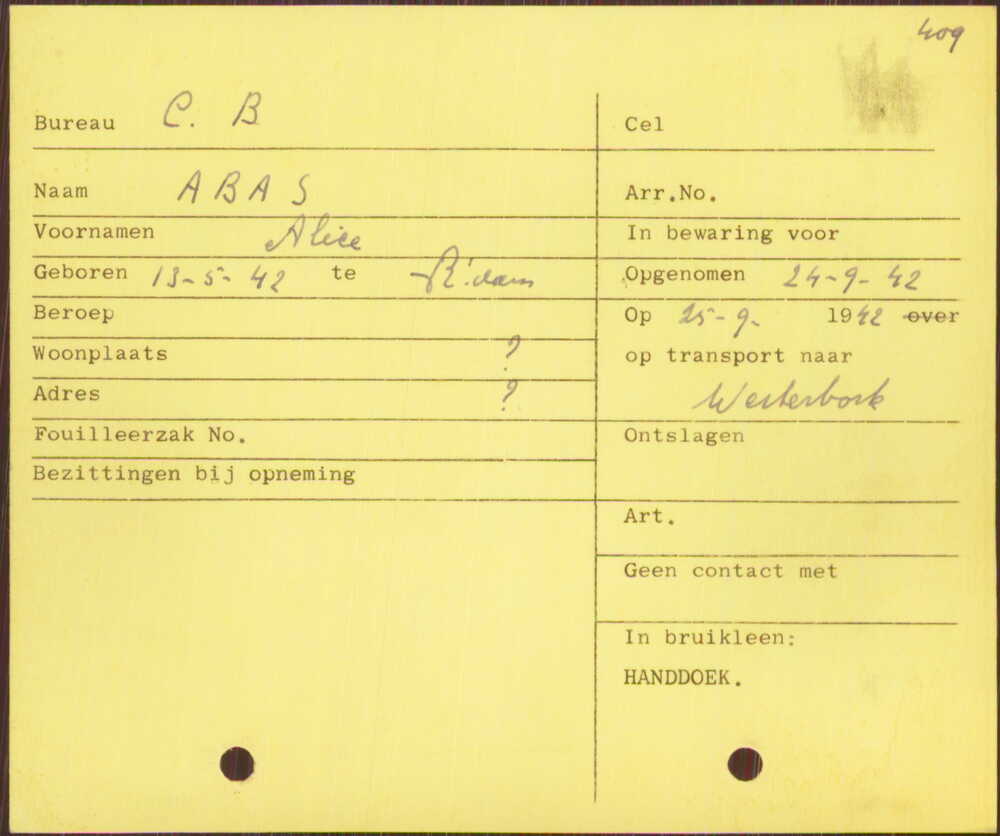 409
Bureau C. B
Cel
Naam ABAS
Arr.No.
Voornamen Alice
In bewaring voor
Geboren 13-5-42 te R'dam
Opgenomen 24-9-42
Beroep
Op 25-9- 1942 over
Woonplaats ?
op transport naar
Adres ?
Westerbork
Fouilleerzak No.
Ontslagen
Bezittingen bij opneming
Art.
Geen contact met
In bruikleen:
HANDDOEK.